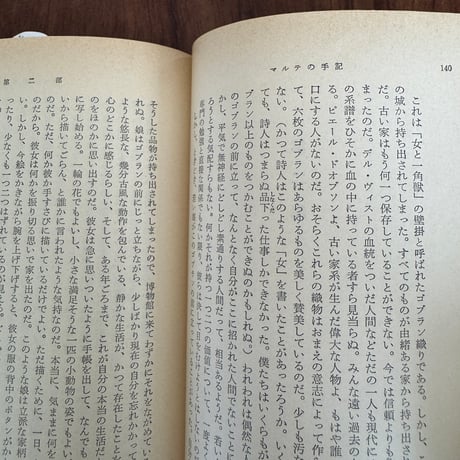 140
マルテの手記
これは「女と一角獣」の壁掛と呼ばれたゴブラン織りである。しかし、こ
の城から持ち出されてしまった。すべてのものが由緒ある家から持ち出され
だ。古い家はもう何一つ保存していることができない。今では信頼よりも
まったのだ。デル・ヴィストの血統をついだ人間などただの一人も現代に
の系譜をひそかに血の中に持っている者すら見当らぬ。みんな遠い過去の
る。ピエール・ドオブソンよ、古い家系が生んだ偉大な人物よ、もはや誰
口にする人がないのだ。おそらくこれらの織物はおまえの意志によって作
て、六枚のゴブランはあらゆるものを美しく賛美しているのだ。少しも汚
ない。（かつて詩人はこのような「女」を書いたことがあったろうか。いく
ても、詩人はつまらぬ品下った仕事しかできなかった。僕たちはいくらもが
ブラン以上のものをつかむことができぬのかもしれぬ。）われわれは偶然な
のゴブランの前に立って、なんとなく自分がここに招かれた人間でないことに
かし、平気で無神経にどしどし素通りする人間だって、相当あるようだ。若い
ろうとする気配すらもない。何かそれが持つ一つ二つの価値について、一度
専門の勉強と直接な関係でもない限り、彼らは決して目を
第二部
そうした品物が持ち出されてしまったので、博物館に来てわずかにそれをながめてい
ぬ。娘はゴブランの前にじっと立ちながら、少しばかり現在の自分を忘れかかって
ような悠長な、幾分古風な動作を包んでいる、静かな生活が、かつて存在したこと
心のどこかに感じるらしい。そして、ある年ごろまで、これが自分の本当の生活だ
のをほのかに思い出すのだ。彼女は急に思いついたよう手帳を出して、なんでも
に写し始める。一輪の花でもよいし、小さな満足そうな一匹の小動物の姿でもよい
いから描いてごらん、と誰かに言われたような気持なのだ。本当に、気ままに何を
のだ。ただ、何か彼が手すさびに描いているだけでよい。ただ描くために、一日
のだから。彼女は何かを振り切る思いで家を出たのだ。このような娘は立派な家柄
い。しかし、今絵をかきながら腕を上げ下げすると、彼女の服の背中のボタンが
ったり、少なくも一つ二つはずれているのが見える。